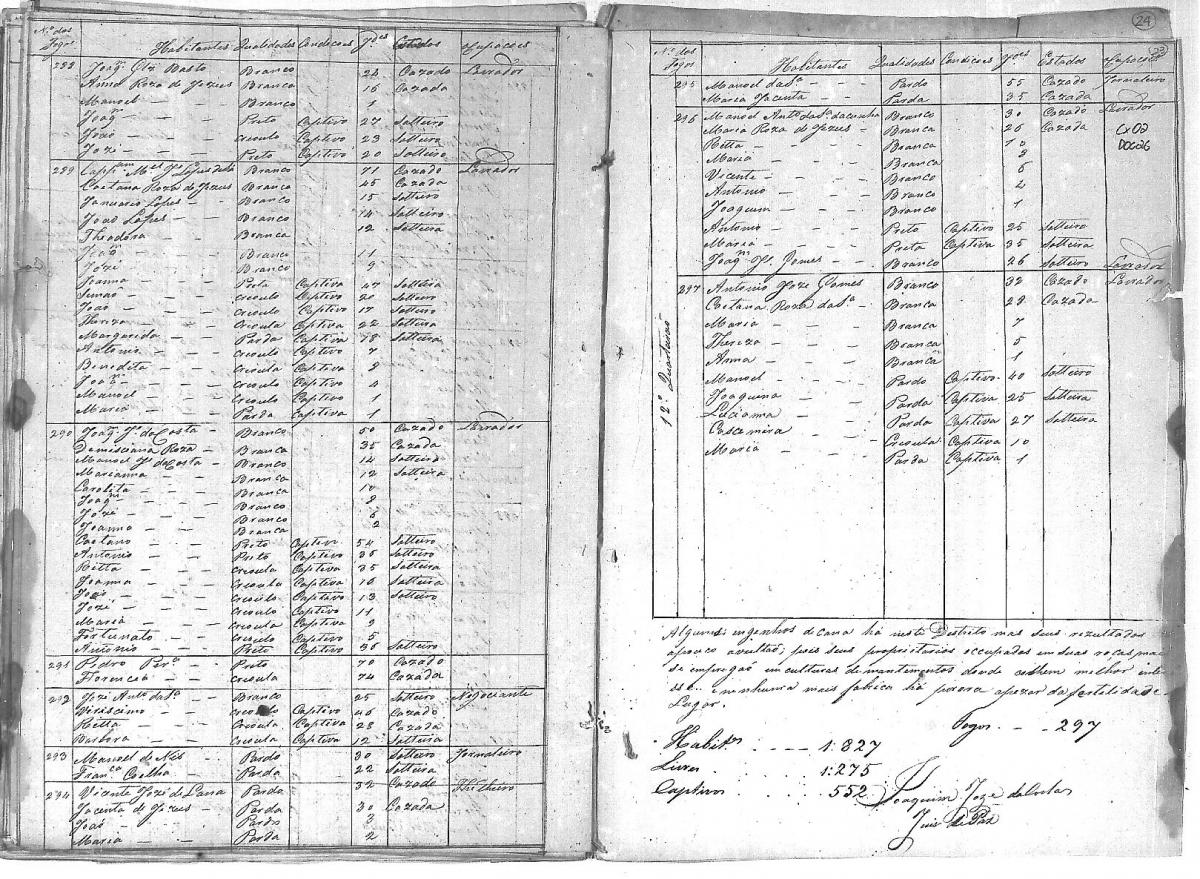 Nº dos Fogos Habitantes Qualidades Condiçoes Jdes Estados Occupações
288 Joaqm Glz Basto Branco 24 Cazado Lavrador
Anna Roza de Jezus Branca 16 Cazada
Manoel Branco 1
Joaqm Preto Captivo 27 Solteiro
José creoulo Captivo 23 Solteiro
Jozé Preto Captivo 20 Solteiro
289 Branco 71 Cazado Lavrador
Caetana Roza de Jezus Branca 45 Cazada
Januario Lopes Branco 15 Solteiro
Joaõ Lopes Branco 14 Solteiro
Theodora Branca 12 Solteira
Joaqm Branco 11
Jozé Branco 9
Joanna Preta Captiva 47 Solteira
Simaõ creoulo Captivo 20 Solteiro
Joaõ creoulo Captivo 17 Solteiro
Thereza Creoula Captiva 22 Solteira
Margarida Parda Captiva 18 Solteira
Antonio creoulo Captivo 7
Benedita creoula Captiva 2
Joaqm creoulo Captivo 4
Manoel creoulo Captivo 1
Maria Parda Captiva 1
290 Joaqm Je da Costa Branco 50 Cazado Lavrador
Demisciana Roza Branca 35 Cazada
Manoel Je da Costa Branco 14 Solteiro
Marianna Branca 12 Solteira
Carolita Branca 10
Joaqm Branco 8
Jozé Branco 6
Joanna Branca 2
Caetano Preto Captivo 54 Solteiro
Antonio Preto Captivo 36 Solteiro
Ritta creoula Captiva 35 Solteira
Joanna creoula Captiva 16 Solteira
Joaõ creoulo Captivo 13 Solteiro
Jozé creoulo Captivo 11
Maria creoula Captiva 9
Fortunato creoulo Captivo 5
Antonio Preto Captivo 36 Solteiro
291 Pedro Perª Preto 70 Cazado
Florencia creoula 74 Cazada
292 Jozé Antº da Sª Branco 25 Solteiro Negociante
Virissimo creoulo Captivo 46 Cazado
Ritta Creoula Captiva 28 Cazada
Barbora Creoula Captiva 12 Solteira
293 Manoel de Pardo 30 Solteiro Jornaleiro
Franca Coelha Parda 22 Solteira
294 Vicente Jozé de Pardo 32 Cazado
Jacenta de Jezus Parda 30 Cazada
Joaõ Pardo 3
Maria Parda 2
24
23
Nº dos Fogos Habitantes Qualidades Condicões Jdes Estados Occupações
295 Manoel da Sª Pardo 55 Cazado Jornaleiro
Maria Jacenta Parda 35 Cazada
296 Manoel Antº da Sª da cunha Branco 30 Cazado Lavrador
Maria Roza de Jezus Branca 26 Cazada
CX02
DOC26
Ritta Branca 10
Maria Branca 8
Vicente Branco 6
Antonio Branco 2
Joaquim Branco 1
Antonio Preto Captivo 25 Solteiro
Maria Preta Captiva 35 Solteira
Joaqm Je Gomes Branco 26 Solteiro Lavrador
297 Antonio Joze Gomes Branco 32 Cazado Lavrador
Caetana Roza da Sª Branca 28 Cazada
Maria Branca 7
Thereza Branca 5
Anna Branca 1
Manoel Pardo Captivo 40 Solteiro
Joaquina Parda Captiva 25 Solteira
Luciana Parda Captiva 27 Solteira
Cascemira Creoula Captiva 10
Maria Parda Captiva 1
12º Quarteirão
Alguns ingenhos de cana ha neste Destrito mas seus rezultados
apouco avultaõ, pois seus proprietarios occupados em suas rocas mais
se empregaõ em culturas de mantimentos donde colhem melhor inte-
e ninhuma mais fabrica ha porora apezar da fertilidade
Lugar.
Fogos 297
Habites 1:827
Livres 1:275
Captivos 552
Joaquim Jozé da Costa
Juis de Paz